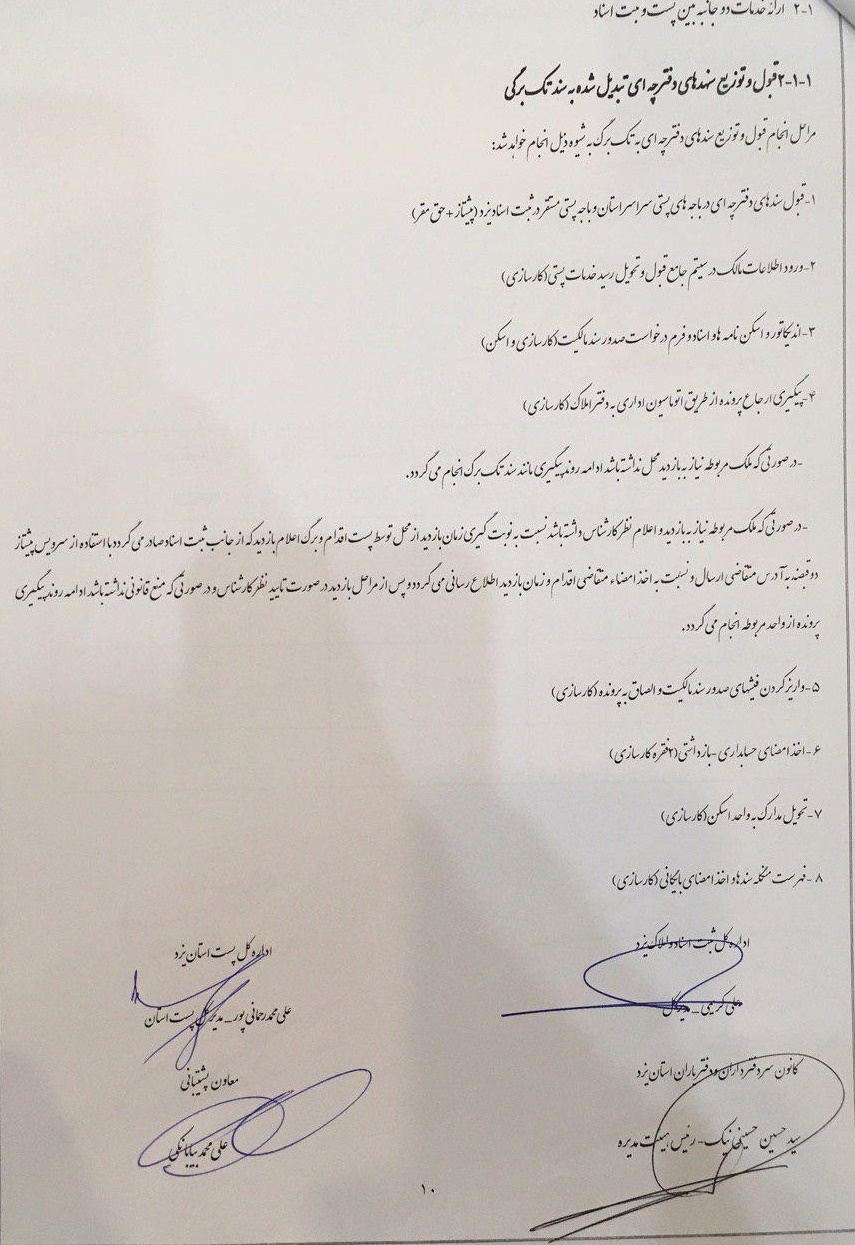 ۲-۱ ارائه خدمات دو جانبه بین پست و ثبت اسناد
۲-۱-۱ قبول و توزیع سندهای دفترچه ای تبدیل شده به سند تک برگی
مراحل انجام قبول و توزیع سندهای دفترچه ای به تک برگ به شیوه ذیل انجام خواهد شد:
۱-قبول سندهای دفترچه ای در باجه های پستی سراسر استان و باجه پستی مستقر در ثبت اسناد یزد (پیشتاز + حق مقر)
۲-ورود اطلاعات مالک در سیستم جامع قبول و تحویل رسید خدمات پستی (کارسازی)
۳-اندیکاتور و اسکن نامه ها و اسناد و فرم درخواست صدور سند مالکیت (کارسازی و اسکن)
۴-پیگیری ارجاع پرونده از طریق اتوماسیون اداری به دفتر املاک (کارسازی)
-در صورتی که ملک مربوطه نیاز به بازدید محل نداشته باشد ادامه روند پیگیری مانند سند تک برگ انجام می گردد.
-در صورتی که ملک مربوطه نیاز به بازدید و اعلام نظر کارشناس داشته باشد نسبت به نوبت گیری زمان بازدید از محل توسط پست اقدام و برگ اعلام بازدید که از جانب ثبت اسناد صادر می گردد با استفاده از سرویس پیشتاز
دو قبضه به آدرس متقاضی ارسال و نسبت به اخذ امضاء متقاضی اقدام و زمان بازدید اطلاع رسانی می گردد و پس از مراحل بازدید در صورت تایید نظر کارشناس و در صورتی که منع قانونی نداشته باشد ادامه روند پیگیری
پرونده از واحد مربوطه انجام می گردد.
۵-واریز کردن فیشهای صدور سند مالکیت و الصاق به پرونده (کارسازی)
۶-اخذ امضای حسابداری -بازداشتی (۲فقره کارسازی)
۷-تحویل مدارک به واحد اسکن (کارسازی)
۸-فهرست منگله سندها و اخذ امضای بایگانی (کارسازی)
اداره کل ثبت اسناد و املاک یزد
علی کریمی _ مدیرکل
اداره کل پست استان یزد
علی محمد رحمانی پور _ مدیر کل پست استان
کانون سردفترداران و دفتریاران استان یزد
سید حسین حسینی نیک - رئیس هیئت مدیره
معاون پشتیبانی
علی محمد بیابانکی
۱۰